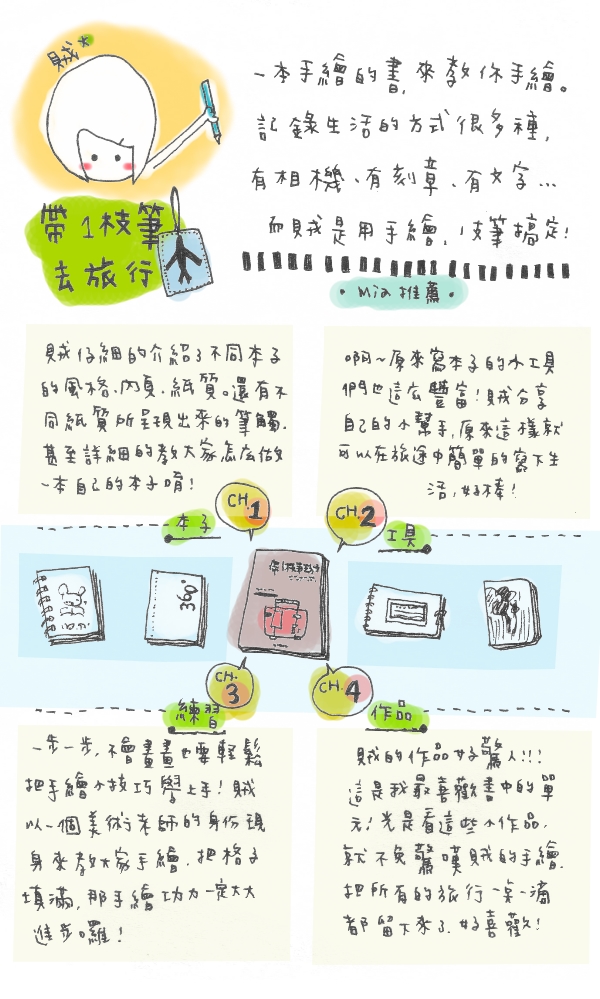 賊
一本手繪的書,來教你手繪。
記錄生活的方式很多種,
有相機、有刻章、有文字...
而賊是用手繪,1枝筆搞定!
帶1枝筆
去旅行
•Mia推薦•
賊仔細的介紹了不同本子
的風格、內頁、紙質。還有不
同紙質所呈現出來的筆觸.
甚至詳細的教大家怎么做
一本自己的本子唷!
啊~原來寫本子的小工具
們也這么豐富!賊分享
自己的小幫手,原來這樣就
可以在旅途中簡單的寫下生
活,好棒!
CH.1
本子
CH.2
工具
360°
帶1枝筆去旅行
CH.3
練習
CH.4
作品
一步一步,不會畫畫也要輕鬆
把手繪小技巧學上手!賊
以一個美術老師的身份現
身來教大家手繪.把格子
填滿,那手繪功力一定大大
進步囉!
賊的作品好驚人!!!
這是我最喜歡書中的單
元!光是看這些小作品.
就不免驚嘆賊的手繪.
把所有的旅行一桌一滴
都留下來了.好喜歡!